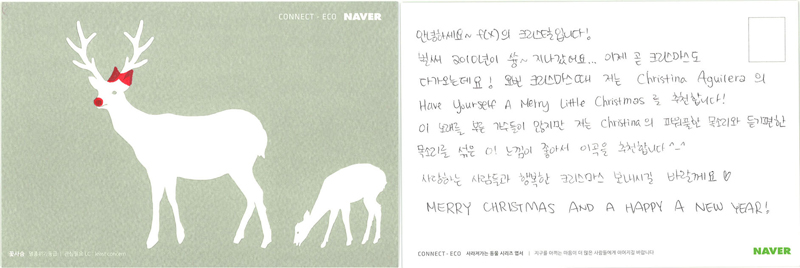 CONNECT · ECO NAVER
꽃사슴
안녕하세요~ f(x)의 크리스탈입니다!
벌써 2010년이 쓩~ 지나갔어요... 이제 곧 크리스마스도
다가오는데요! 요번 크리스마스때 저는 Christina Aguilera 의
Have Yourself A Merry Little Christmas 를 추천합니다!
이 노래를 부른 가수들이 많지만 저는 Christina의 파워풀한 목소리와 듣기편한
목소리를 섞은 이 느낌이 좋아서 이곡을 추천합니다 ^_^
사랑하는 사람들과 행복한 크리스마스 보내시길 바랄게요♡
MERRY CHRISTMAS AND A HAPPY A NEW YEAR!
CONNECT · ECO 사라져가는 동물 시리즈 엽서 | 지구를 아끼는 마음이 더 많은 사람들에게 이어지길 바랍니다 NAVER